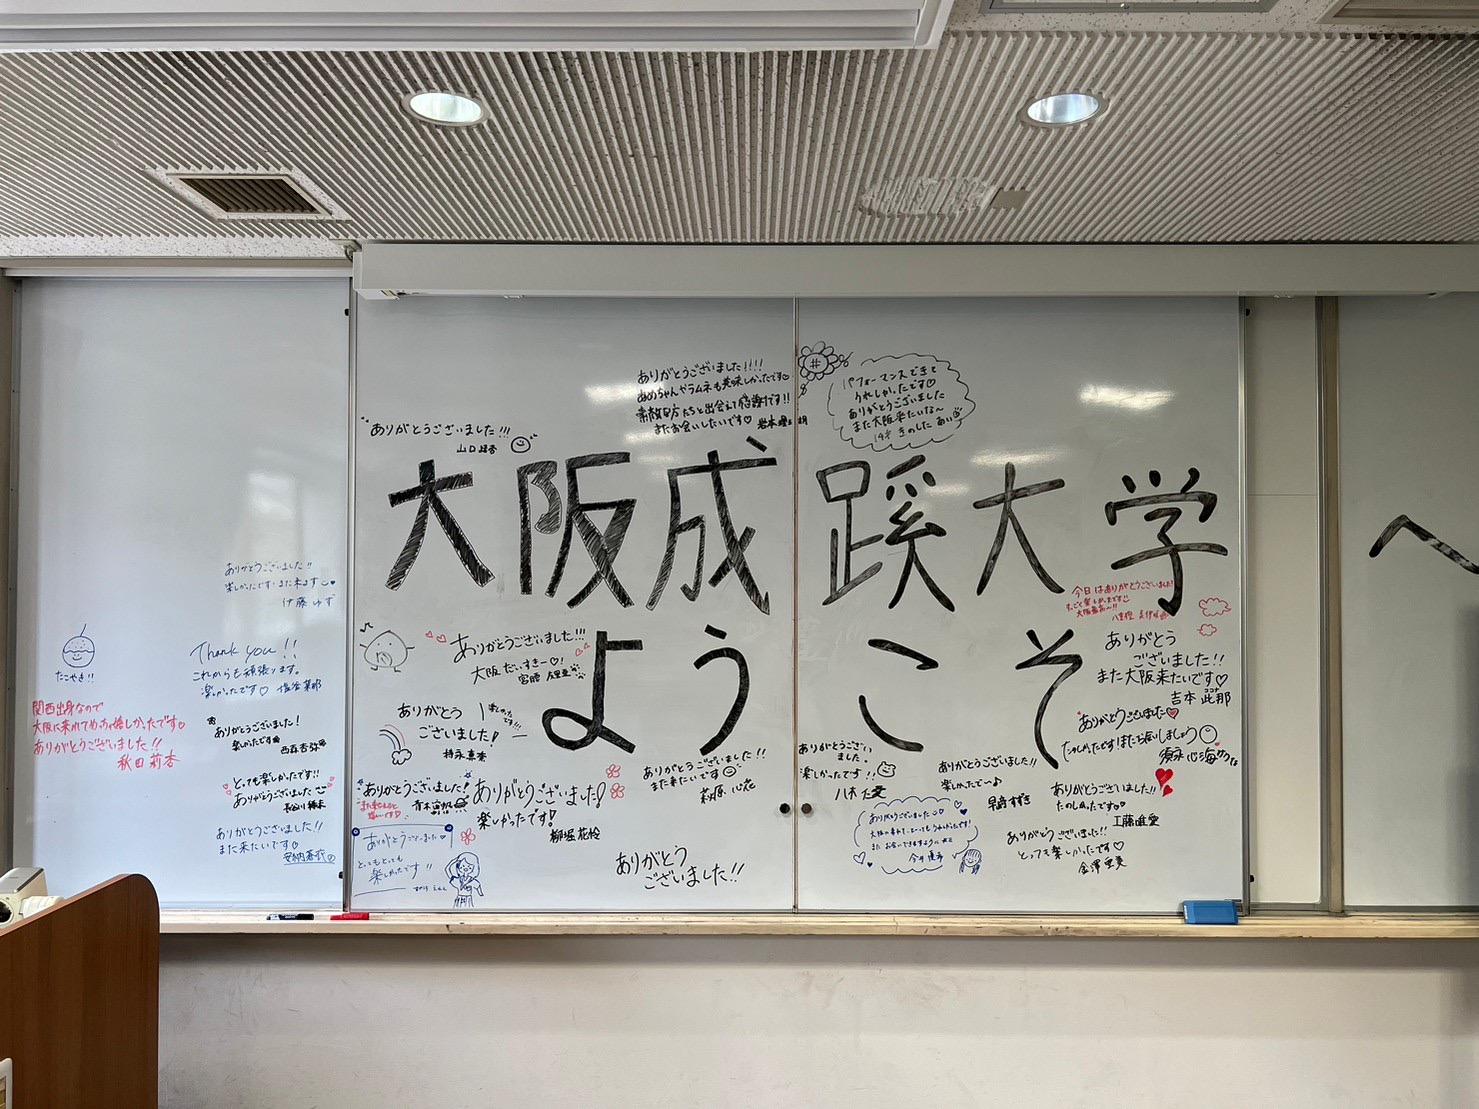 大阪成蹊大学へ
ようこそ
ありがとうございました!!!!
あめちゃんやラムネも美味しかったです♡
素敵な方たちと出会えて感謝です!!
またお会いしたいです♡
パフォーマンスできて
うれしかったです♡
ありがとうございました
また大阪来たいな〜
きのした あい
ありがとうございました!!!
ありがとうございました!!
楽しかったです!また来ます
伊藤 ゆず
たこやき!!
関西出身なので
大阪に来れてめっちゃ嬉しかったです♡
ありがとうございました!!
秋田 莉杏
Thank you!!
これからも頑張ります。
楽しかったです♡
ありがとうございました!
楽しかったです
とっても楽しかったです!!
ありがとうございました
ありがとうございました!!
また来たいです♡
ありがとうございました!!!
大阪だいすきー♡!
ありがとう
ございました!
楽しかったです!!!
ありがとうございました!
ありがとうございました!
楽しかったです!
柳堀 花怜
ありがとうございました!
とってもとっても
楽しかったです!!
ありがとうございました!!
また来たいです
萩原 心花
ありがとう
ございました!!
ありがとうござい
ました。
楽しかったです!!
八木 仁愛
ありがとうございました!!
楽しかたで〜♪
早﨑 すずき
ありがとうございました
今日はありがとうございました!
ありがとう
ございました!!
また大阪来たいです♡
吉本 此那
ココナ
ありがとうございました
たのしかったです!またお会いしましょう
ありがとうございました!!
たのしかったです♡
工藤 唯愛
ありがとうございました!!
とっても楽しかったです♡
金澤 亜美